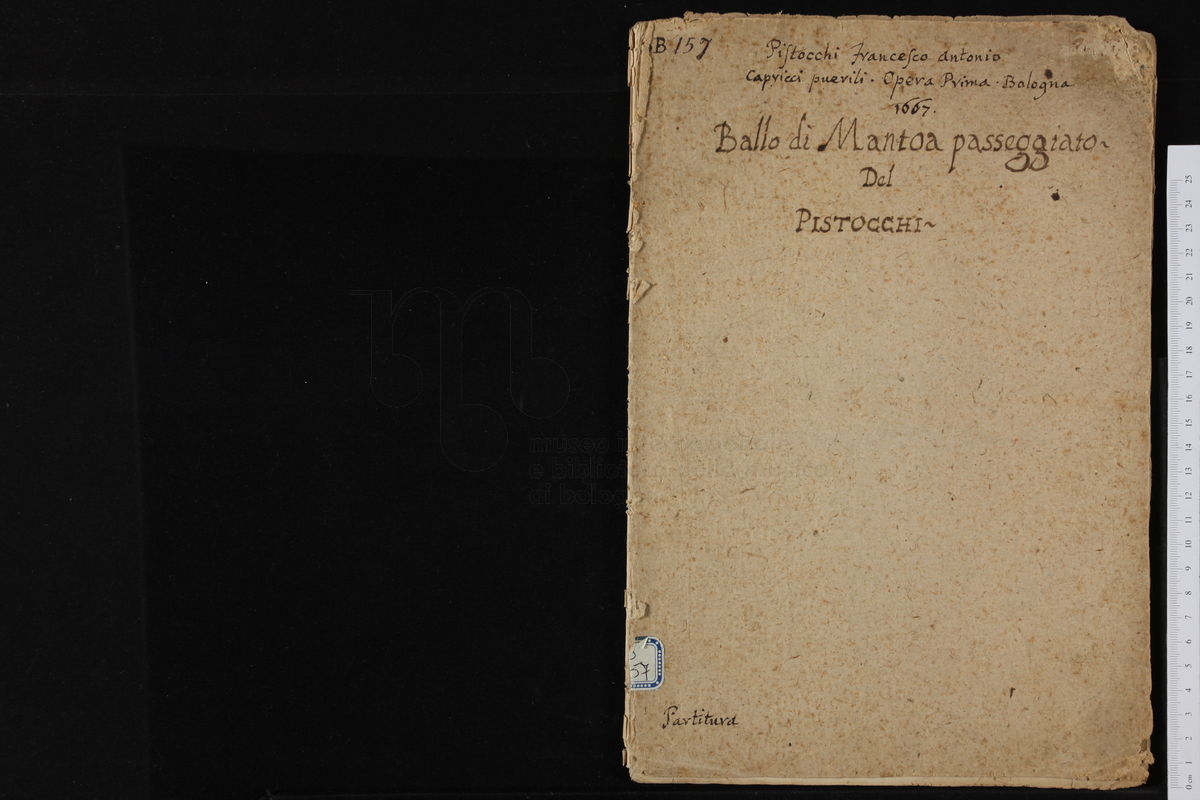 B 157
Piſtocchi Franceſco Antonio
Capricci puerili. Opera Prima. Bologna
1667.
Ballo di Mantoa passeggiato~
Del
PISTOCCHI~
57
Partitura
museo
e biblio
di bolo
0 cm 1 2 3 4 5 6 7 8 9 10 11 12 13 14 15 16 17 18 19 20 21 22 23 24 25